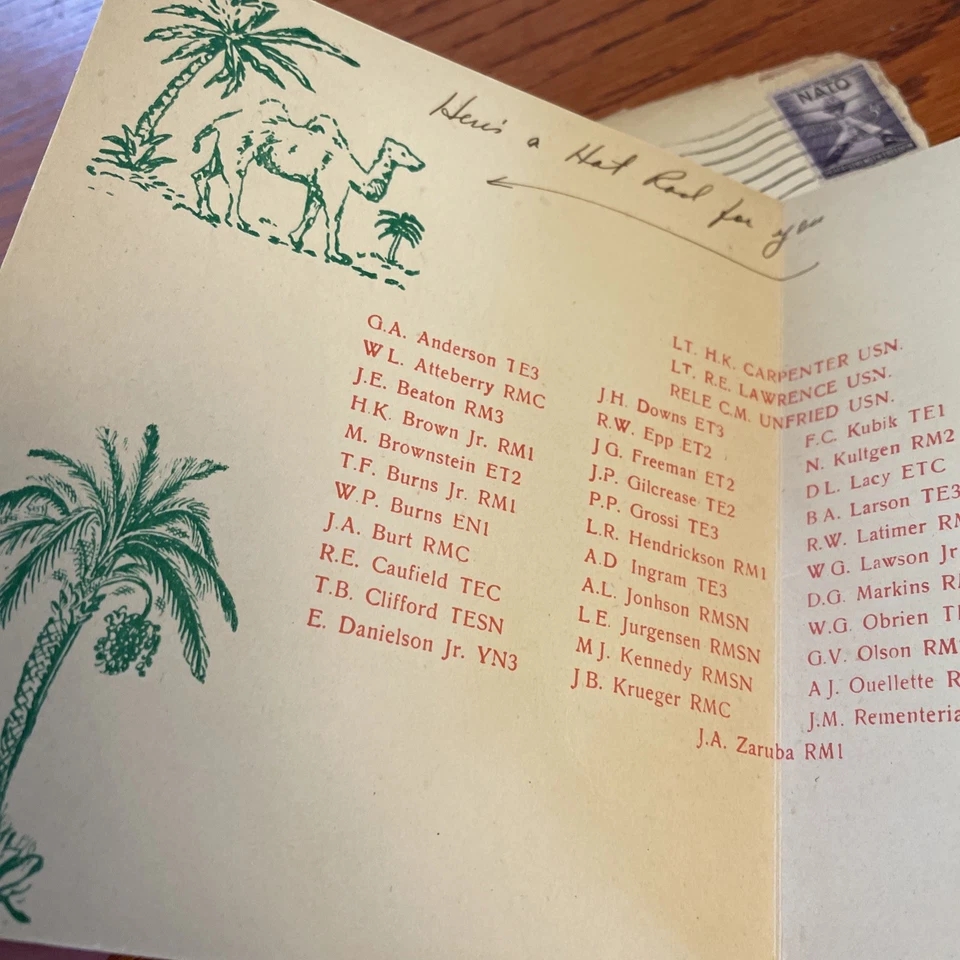 NATO
Here's a Hot Rod for you
LT. H.K. CARPENTER USN.
LT. R.E. LAWRENCE USN.
RELE C.M. UNFRIED USN.
G.A. Anderson TE3
W L. Atteberry RMC
J.E. Beaton RM3
H.K. Brown Jr. RM1
M. Brownstein ET2
T.F. Burns Jr. RM1
W.P. Burns EN1
J.A. Burt RMC
R.E. Caufield TEC
T.B. Clifford TESN
E. Danielson Jr. YN3
J H. Downs ET3
R.W. Epp ET2
J G. Freeman ET2
J.P. Gilcrease TE2
P.P. Grossi TE3
L.R. Hendrickson RM1
A.D Ingram TE3
A.L. Jonhson RMSN
L E. Jurgensen RMSN
M J. Kennedy RMSN
J B. Krueger RMC
F.C. Kubik TE1
N. Kultgen RM2
D L. Lacy ETC
B A. Larson TE3
R.W. Latimer
W G. Lawson Jr
D.G. Markins
W.G. Obrien
G.V. Olson RM
A J. Ouellette
J.M. Rementeria
J.A. Zaruba RM1